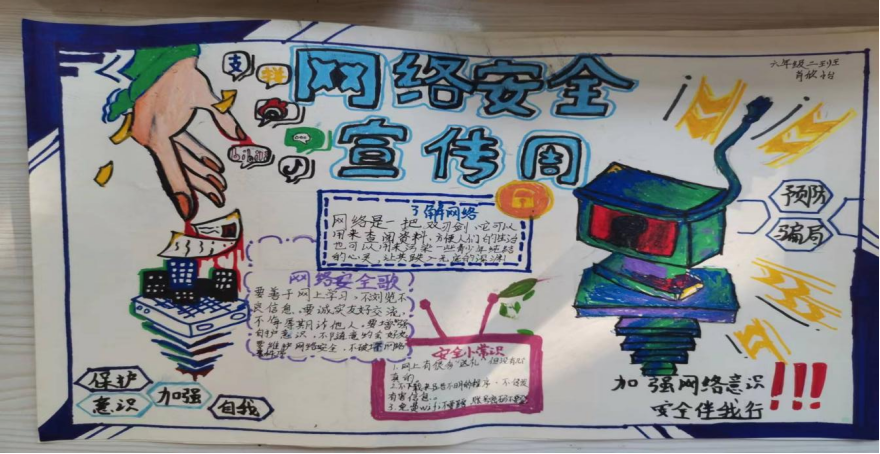 网络安全
宣传周
六年级二班
支
bilibili
了解网络
网络是一把双刃剑,它可以
用来查阅资料,方便人们的生活
也可以用来污染一些青少年纯洁
的心灵,
网络安全歌
要善于网上学习,不浏览不
良信息,要诚实友好交流,
不侮辱欺诈他人,要增强
自护意识,不随意约会网友
要维护网络安全,不破坏网络
安全小常识
1.网上有很多
2.不下载来历不明的程序,不传播
有害信息。
3.免费Wifi不要
预防
骗局
保护
意识
加强
自我
加强网络意识
安全伴我行!!!